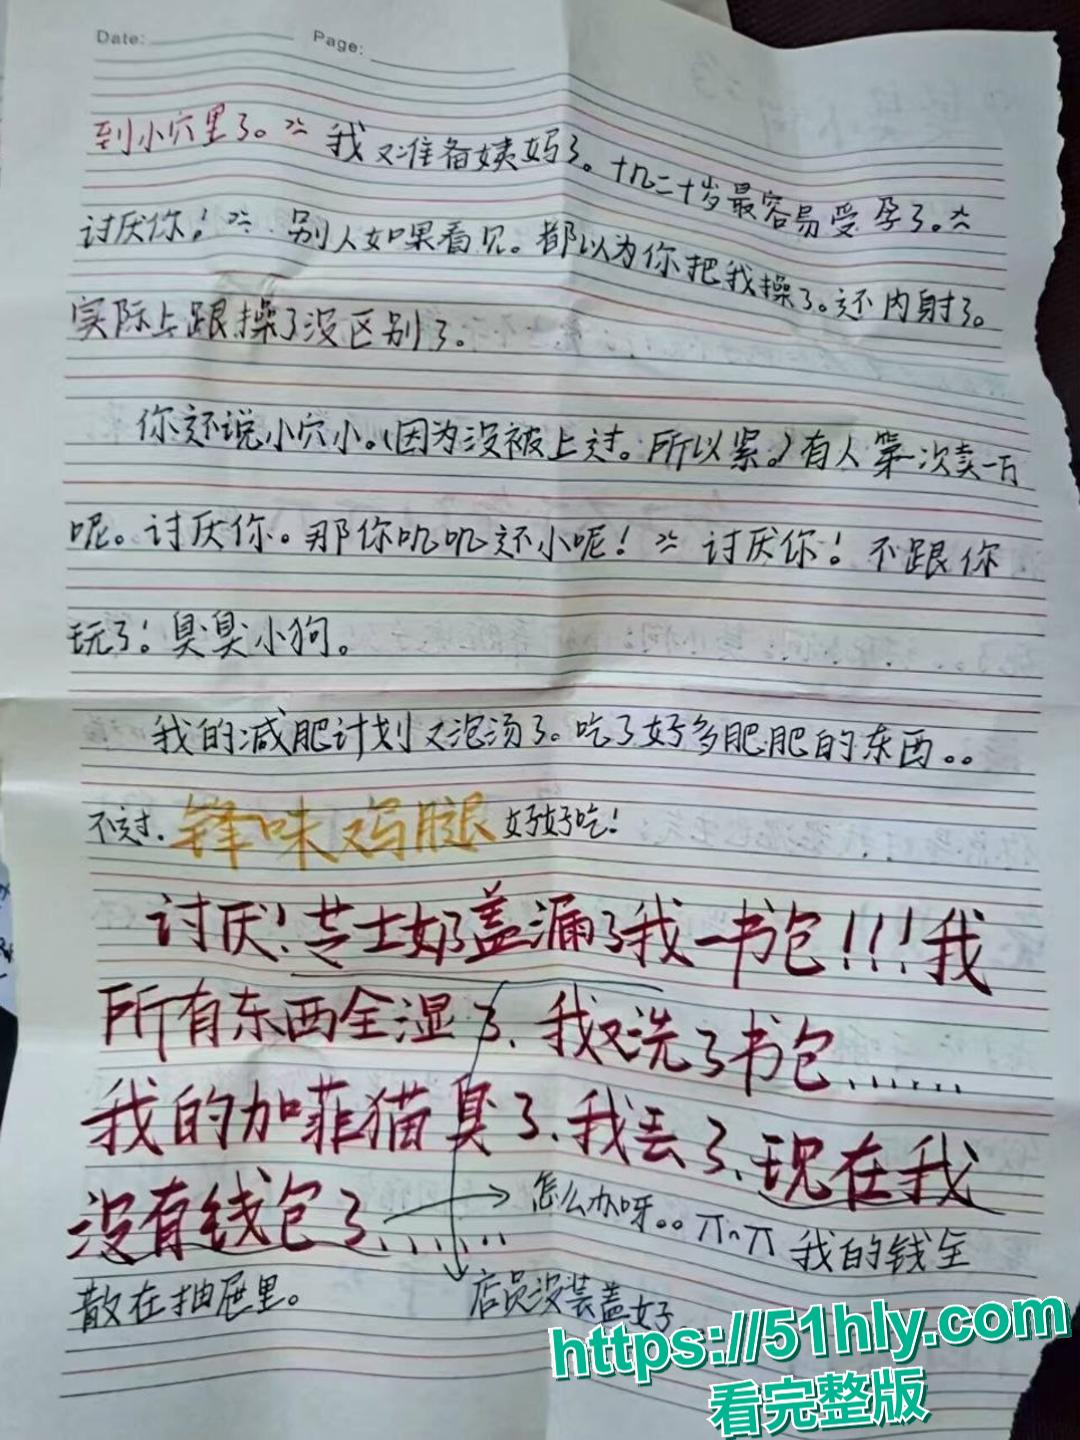 Date:
Page:
到小穴里了。
我又准备姨妈了。十几二十岁最容易受孕了。
讨厌你! 别人如果看见。都以为你把我操了。还内射了。
实际上跟操了没区别了。
你还说小穴小。(因为没被上过。所以紧。)有人第一次卖一万
呢。讨厌你。那你叽叽还小呢! 讨厌你! 不跟你
玩了! 臭臭小狗。
我的减肥计划又泡汤了。吃了好多肥肥的东西。。
不过. 锋味鸡腿 好好吃!
讨厌! 芝士奶盖漏了我一书包!!!我
所有东西全湿了、我又洗了书包......
我的加菲猫臭了、我丢了、现在我
没有钱包了......
怎么办呀。。π^π 我的钱全
散在抽屉里。
店员没装盖好
https://51hly.com
看完整版